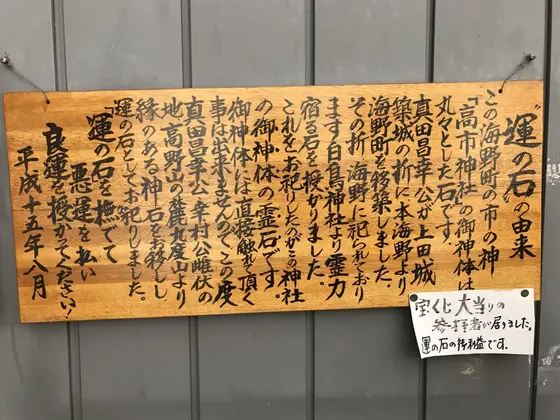 "運の石"の由来
この海野町の市の神
「高市神社」の御神体は
丸々とした石です。
真田昌幸公が上田城
築城の折に本海野より
海野町を移築しました。
その折、海野に祀られており
ます白鳥神社より霊力
宿る石を授かりました。
これをお祀りしたのがこの神社
の御神体の霊石です。
御神体には直接触れて頂く
事は出来ませんのでこの度
真田昌幸公幸村公雌伏の
地高野山の麓九度山より
縁のある神石をお移しし
運の石としてお祀りしました。
「運の石を撫でて
悪運を払い
良運を授かってください!
平成十五年八月
宝くじ大当りの
参拝者が居りました。
運の石の御利益です。